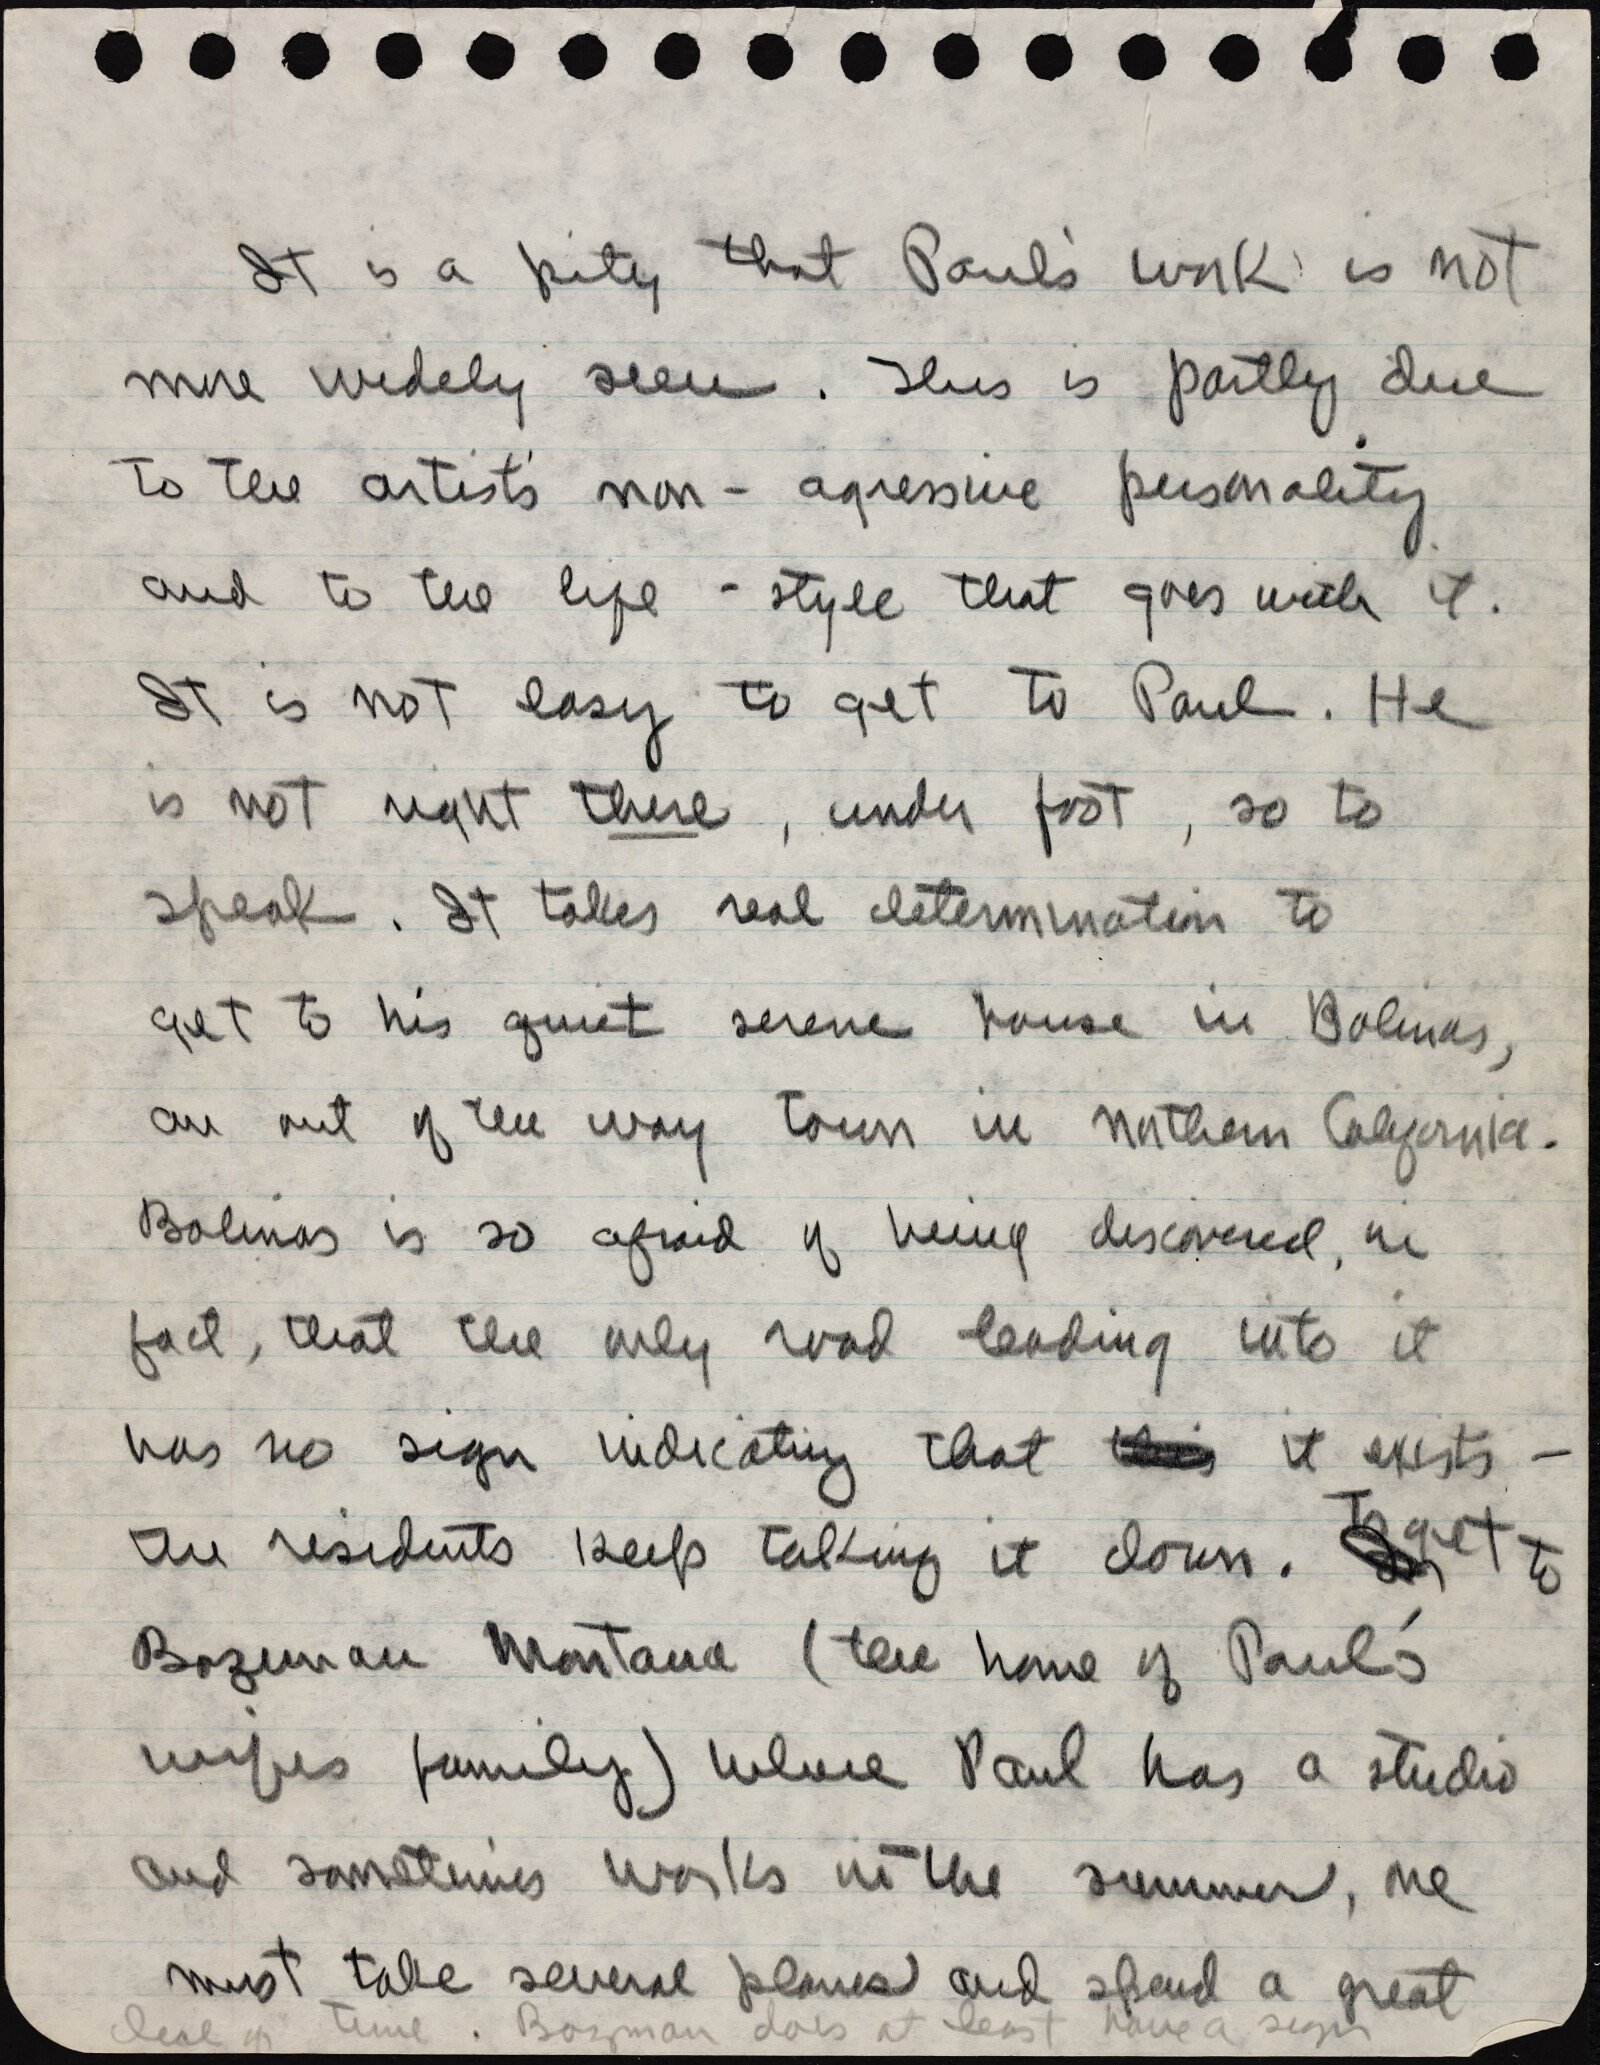 It is a pity that Paul's work is not
more widely seen. This is partly due
to the artist's non-agressive personality
and to the life-style that goes with it.
It is not easy to get to Paul. He
is not right there, under foot, so to
speak. It takes real determination to
get to his quiet serene house in Bolinas,
an out of the way town in Northern California.
Bolinas is so afraid of being discovered, in
fact, that the only road leading into it
has no sign indicating that this it exists -
the residents keep taking it down. To get to
Bozeman Montana (the home of Paul's
wifes family) where Paul has a studio
and sometimes works in the summer, one
must take several planes and spend a great
deal of time. Bozman does at least have a sign